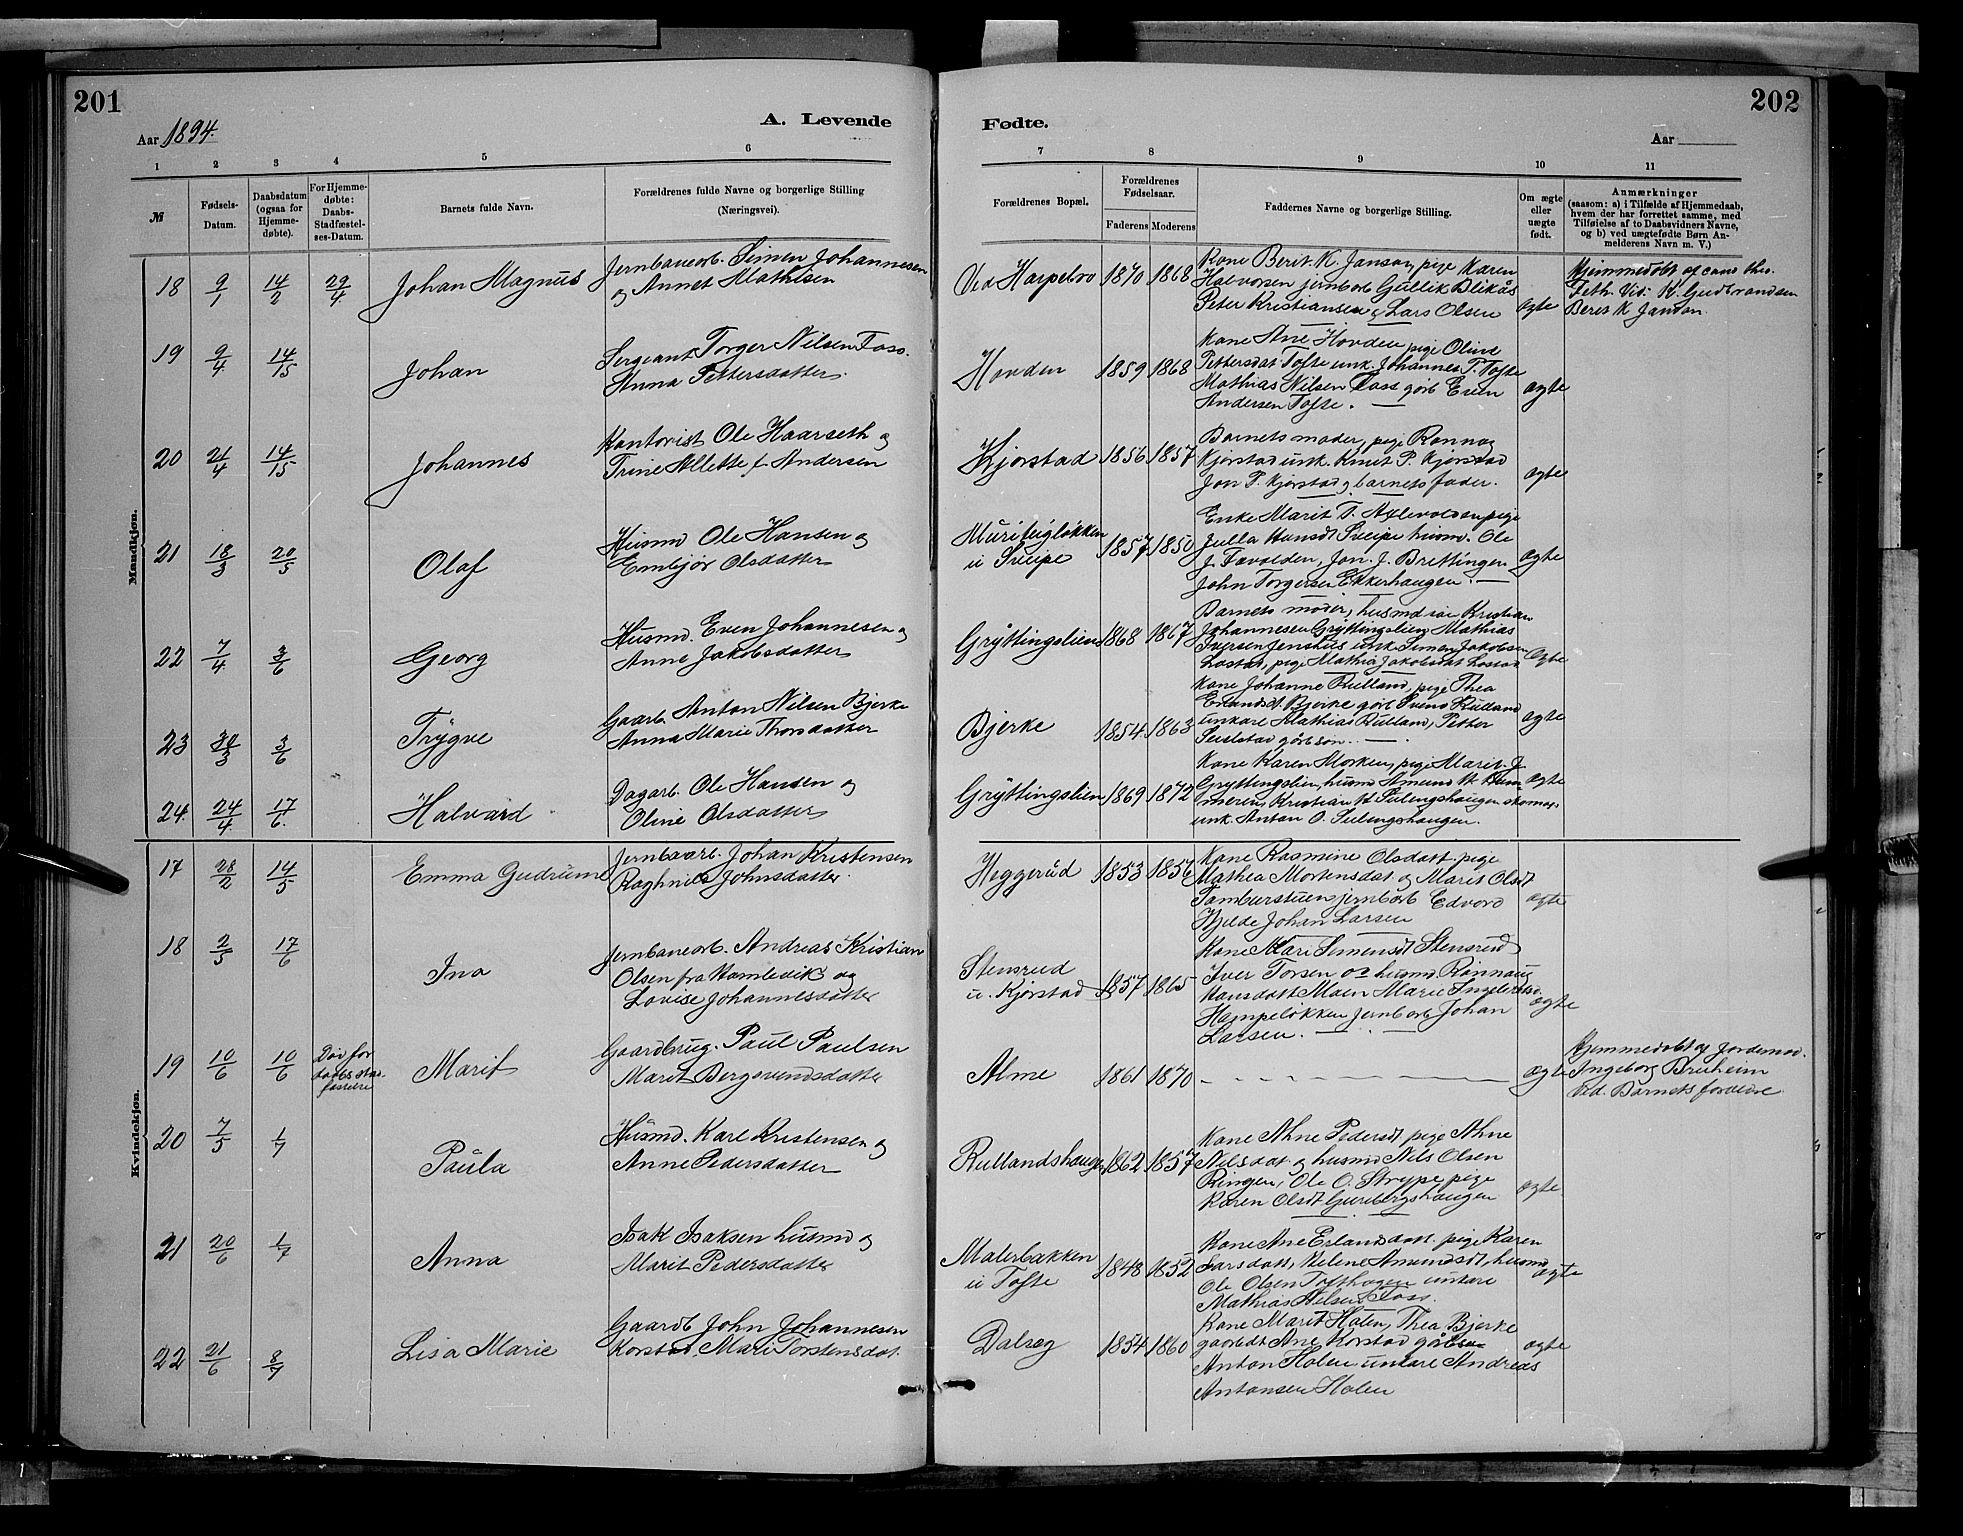 201
Aar 1894.
A. Levende
1 2 3 4 5 6
№
Fødsels-
Datum.
Daabsdatum
(ogsaa for
Hjemme-
døbte).
For Hjemme-
døbte:
Daabs-
Stadfæstel-
ses-Datum.
Barnets fulde Navn.
Forældrenes fulde Navne og borgerlige Stilling
(Næringsvei).
Mandkjøn.
18 9/1 14/2 29/4 Johan Magnus
Jernbanearb. Simen Johannesen
og Annet Mathisen
19 9/4 14/15 Johan
Sergeant Torger Nilsen Foss.
Anna Pettersdatter.
20 21/4 14/15 Johannes
Kontorist Ole Haarseth og
Trine Allette f. Andersen
21 18/3 20/5 Olaf
Husmd Ole Hansen og
Embjør Olsdatter
22 7/4 3/6 Georg
Husmd. Even Johannesen og
Anne Jakobsdatter
23 30/3 3/6 Trygve
Gaarb. Anton Nilsen Bjerke
Anna Marie Thorsdatter
24. 24/4 17/6. Halvard
Dagarb. Ole Hansen og
Oline Olsdatter
Kvindekjøn.
17 28/2 14/5 Emma Gudrune
Jernbaarb. Johan Kristensen
Raghnild Johnsdatter.
18 2/5 17/6 Ina
Jernbanearb. Andreas Kristian
Olsen fra Hamlevik og
Lovise Johannesdatter
19 10/6 10/6 Død før
Marit
Gaardbrug. Paul Paulsen
Marit Bergsvendsdatter
20 7/5 1/7 Paula
Husmd. Karl Kristensen og
Anne Pedersdatter
21 20/6 1/7 Anna
Isak Isaksen husmd og
Marit Pedersdatter
22 21/6 8/7 Lisa Marie
Gaardb John Johannesen
Korstad, Mari Torstensdat.
202
Fødte.
Aar
7 8 9 10 11
Forældrenes Bopæl.
Forældrenes
Fødselsaar.
Faderens Moderens
Faddernes Navne og borgerlige Stilling.
Om ægte
eller
uægte
født.
Anmærkninger
(saasom: a) i Tilfælde af Hjemmedaab,
hvem der har forrettet samme, med
Tilføielse af to Daabsvidners Navne,
og b) ved uægtefødte Børn An-
melderens Navn m. V.)
Ved Harpebro 1870 1868
Kone Berit K. Janson, pige Karen
Halvorsen jernarb Gullik Blikås
Peter Kristiansen og Lars Olsen
ægte
Hjemmedøbt af cand theo.
Feth. Vid: K. Gudbrandsen
Berit K Janson.
Hovden 1859 1868
Kone Ane Hovden pige Oline
Pettersdat Tofte unk. Johannes P. Tofte
Mathias Nilsen Foss gårb Even
Andersen Tofte.
ægte
Kjorstad 1856 1857
Barnets moder, pige Rønnog
Kjørstad unk. Knut P. Kjørstad
Jon P. Kjørstad og barnets fader.
ægte
u Sveipe 1857 1850
Enke Marit T. pige
Julla Hansdt Sveipe husmd. Ole
J. Jon. J. Brettingen
John Torgersen Ekkerhaugen.
ægte
Gryttingslien 1868 1867
Barnets moder, husmd Kristian
Johannesen Gryttingslien Mathias
Iversen unk Simen Jakobsen
Lostad, pige Mathia Jakobsdt Lostad
ægte
Bjerke 1854 1863
Kone Johanne Rulland, pige Thea
Erlandsdt Bjerke gårb Svend Rulland
unkare Mathias Rulland, Petter
gårbsøn.
ægte
Gryttingslien 1869 1872
Kone Karen Morken, pige Marit J.
Gryttingslien, husmd Amund
Kristian
unk. Anton O. Sulengshaugen.
ægte
Heggerud 1853 1856
Kone Rasmine Olsdatt. pige
Mathea Mortensdat og Marit Olsdt
Tamburstuen jernarb Edvard
Hjelde Johan Larsen
ægte
Stensrud
u. Kjørstad 1857 1865
Kone Mari Simensdt Stensrud
Iver Torsen og husmd. Rønnaug
Hansdatt Moen Marie
Hampeløkken Jernarb Johan
Larsen.
ægte
Alme 1861 1870
ægte
Hjemmedøbt af Jordemod.
Ingeborg Bruheim
Vid. Barnets forældre
Rullandshaugen 1862 1857
Kone Ahne Pedersdt pige Ahne
Nilsdat og husmd Nils Olsen
Ringen, Ole O. Strype pige
Karen Olsdt
ægte
Malerbakken
u Tofte 1848 1852
Kone Ane Erlandsdatt. pige Karen
Larsdatt, Helene Amundsdt, husmd
Ole Olsen Tofthagen unkare
Mathias Nilsen Foss.
ægte
Dalseg 1854 1860
Kone Marit Holen, Thea Bjerke
gaarbdt Ane Korstad gårbsøn
Anton Holen unkare Andreas
Antonsen Holen
ægte